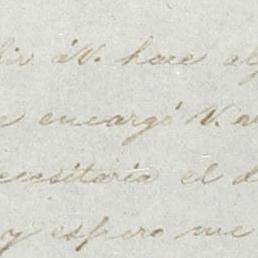 dir á V. hace al
encargó V. a
ecesitaria el d
y espero me